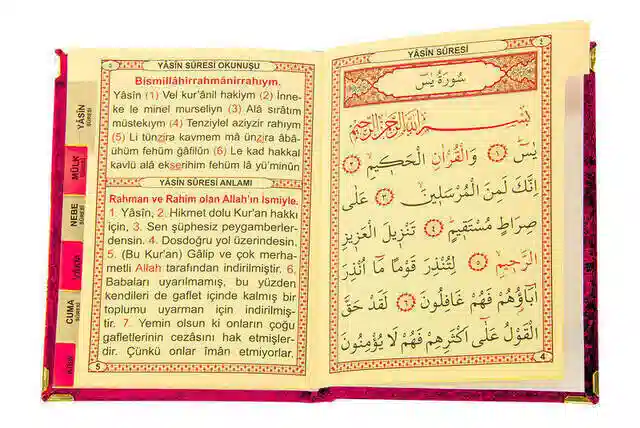 ٥
YÂSÎN SÛRESİ OKUNUŞU
Bismillâhirrahmânirrahıym.
Yâsîn (1) Vel kur'ânil hakiym (2) İnne-
ke le minel murseliyn (3) Alâ sırâtım
müstekıym (4) Tenziylel aziyzir rahıym
(5) Li tünzira kavmem mâ ünzira âbâ-
ühüm fehüm gâfilûn (6) Le kad hakkal
kavlü alâ ekserihim fehüm lâ yü'minûn
YÂSÎN SÛRESİ ANLAMI
Rahman ve Rahim olan Allah'ın İsmiyle.
1. Yâsîn, 2. Hikmet dolu Kur'an hakkı
için, 3. Sen şüphesiz peygamberler-
densin. 4. Dosdoğru yol üzerindesin.
5. (Bu Kur'an) Gâlip ve çok merha-
metli Allah tarafından indirilmiştir. 6.
Babaları uyarılmamış, bu yüzden
kendileri de gaflet içinde kalmış bir
toplumu uyarman için indirilmiş-
tir. 7. Yemin olsun ki onların çoğu
gafletlerinin cezasını hak etmişler-
dir. Çünkü onlar îmân etmiyorlar.
5
YÂSÎN
SÛRESİ
MÜLK
NEBE
SÛRESİ
CUMA
SÛRESİ
YÂSÎN SÛRESİ
٤
سُورَةُ يٰسٓ
بِسْمِ اللّٰهِ الرَّحْمٰنِ الرَّحِيمِ
يٰسٓ ﴿١﴾ وَالْقُرْاٰنِ الْحَكِيمِ ﴿٢﴾
اِنَّكَ لَمِنَ الْمُرْسَلِينَ ﴿٣﴾ عَلٰى
صِرَاطٍ مُسْتَقِيمٍ ﴿٤﴾ تَنْزِيلَ الْعَزِيزِ
الرَّحِيمِ ﴿٥﴾ لِتُنْذِرَ قَوْمًا مَٓا اُنْذِرَ
اٰبَٓاؤُ۬هُمْ فَهُمْ غَافِلُونَ ﴿٦﴾ لَقَدْ حَقَّ
الْقَوْلُ عَلٰٓى اَكْثَرِهِمْ فَهُمْ لَا يُؤْمِنُونَ
4